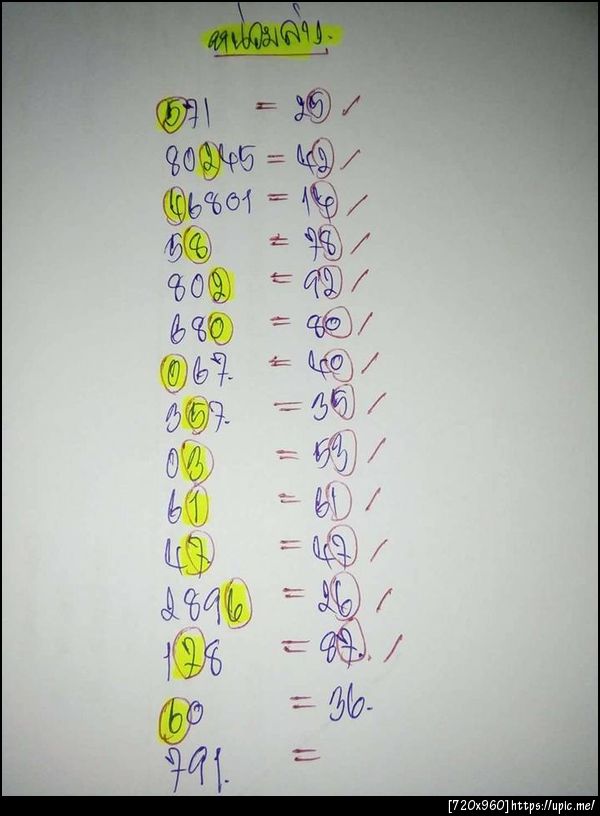 หน่วยล่าง.
571 = 25 ✓
80245 = 42 ✓
46801 = 14 ✓
58 = 78 ✓
802 = 92 ✓
680 = 80 ✓
067. = 40 ✓
357. = 35 ✓
03 = 53 ✓
61 = 61 ✓
47 = 47 ✓
2896 = 26 ✓
178 = 87. ✓
60 = 36.
791. =
[720x960]https://upic.me/